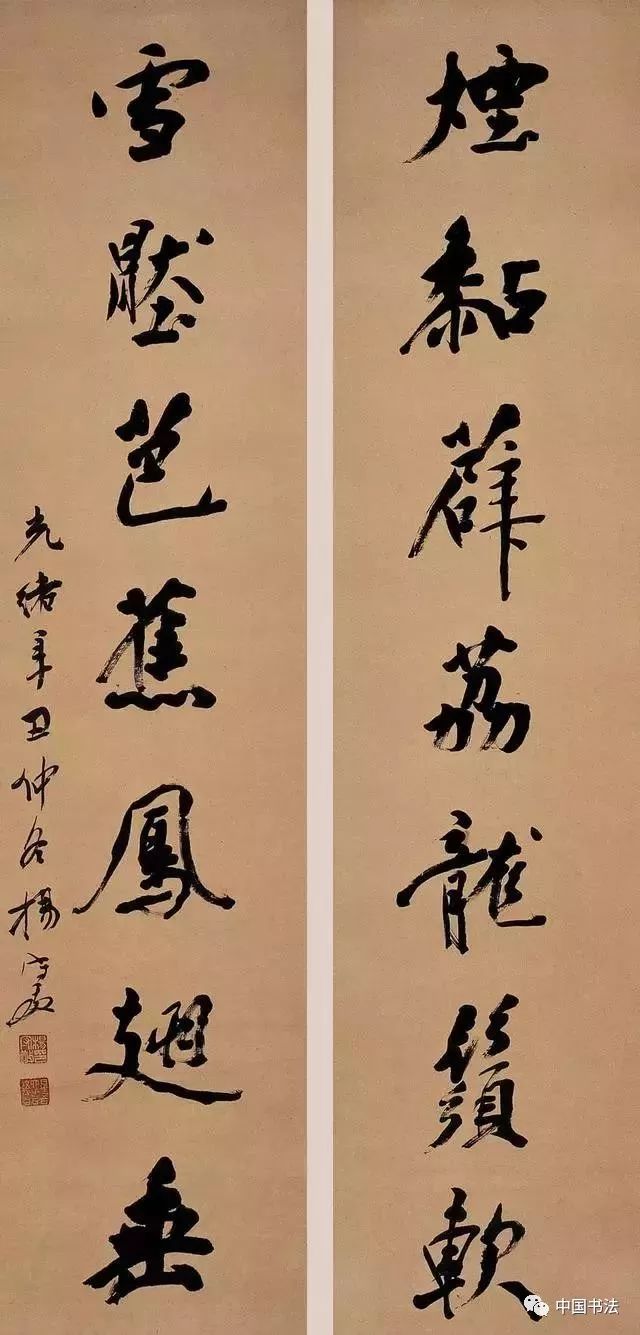 煙黏薜荔龍鬚軟
雪壓芭蕉鳳翅垂
光緒辛丑仲冬楊守敬
中国书法